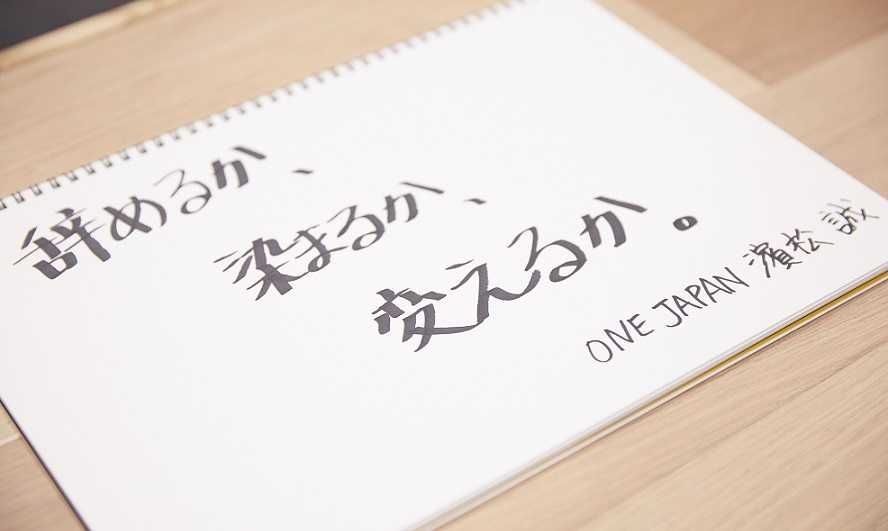 辞めるか、
染まるか、
変えるか。
ONE JAPAN 濱松 誠